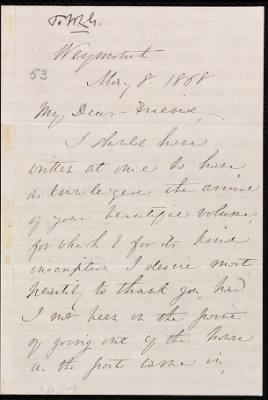 To W.L.G.
Weymouth
53
May 8. 1868
My Dear Friend,
I should have
written at once to have
acknowledged the arrival
of your beautiful volume,
for which & for its kind
inscription I desire most
heartily to thank you, had
I not been on the point
of going out of the house
as the post came in,